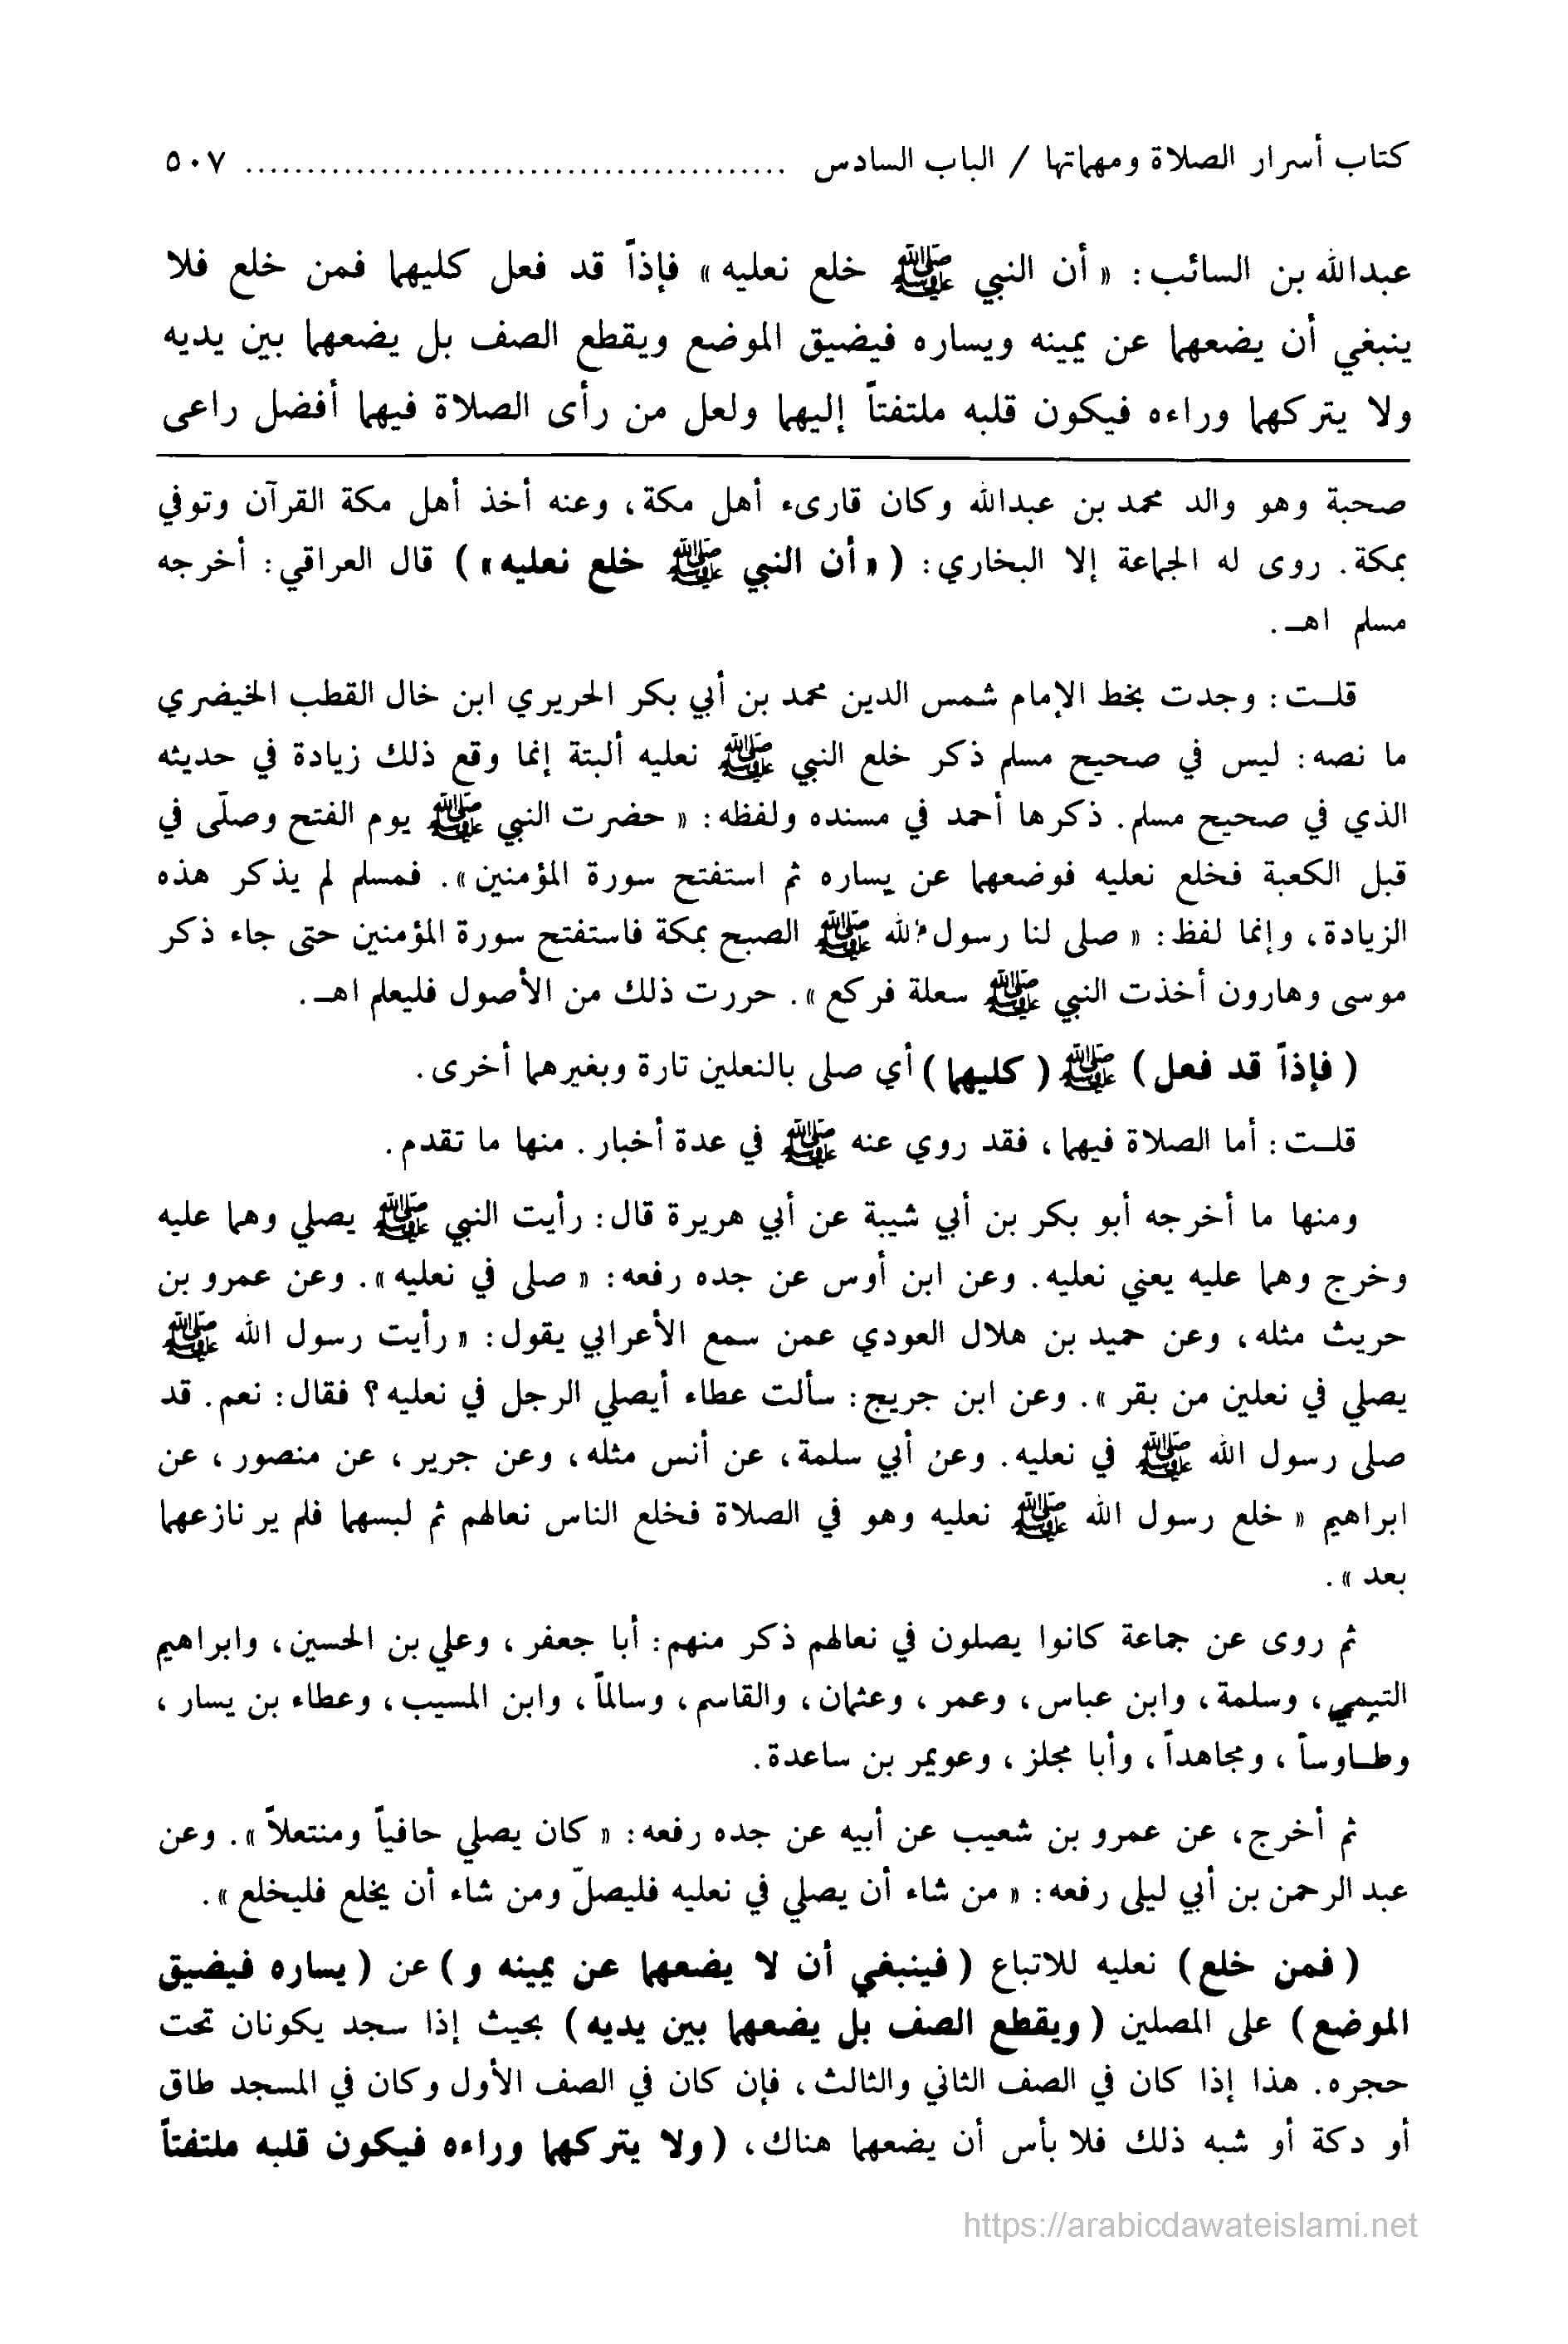 كتاب أسرار الصلاة ومهماتها / الباب السادس ............................................ ٥٠٧
عبدالله بن السائب: « أن النبي ﷺ خلع نعليه » فإذاً قد فعل كليهما فمن خلع فلا
ينبغي أن يضعهما عن يمينه ويساره فيضيق الموضع ويقطع الصف بل يضعهما بين يديه
ولا يتركهما وراءه فيكون قلبه ملتفتاً إليهما ولعل من رأى الصلاة فيهما أفضل راعى
صحبة وهو والد محمد بن عبدالله وكان قارىء أهل مكة، وعنه أخذ أهل مكة القرآن وتوفي
بمكة. روى له الجماعة إلا البخاري: ( « أن النبي ﷺ خلع نعليه » ) قال العراقي: أخرجه
مسلم اهـ.
قلـت: وجدت بخط الإمام شمس الدين محمد بن أبي بكر الحريري ابن خال القطب الخيضري
ما نصه: ليس في صحيح مسلم ذكر خلع النبي ﷺ نعليه ألبتة إنما وقع ذلك زيادة في حديثه
الذي في صحيح مسلم. ذكرها أحمد في مسنده ولفظه: « حضرت النبي ﷺ يوم الفتح وصلّى في
قبل الكعبة فخلع نعليه فوضعهما عن يساره ثم استفتح سورة المؤمنين ». فمسلم لم يذكر هذه
الزيادة، وإنما لفظ: « صلى لنا رسول الله ﷺ الصبح بمكة فاستفتح سورة المؤمنين حتى جاء ذكر
موسى وهارون أخذت النبي ﷺ سعلة فركع ». حررت ذلك من الأصول فليعلم اهـ.
( فإذاً قد فعل ) ﷺ ( كليهما ) أي صلى بالنعلين تارة وبغيرهما أخرى.
قلـت: أما الصلاة فيهما، فقد روي عنه ﷺ في عدة أخبار. منها ما تقدم.
ومنها ما أخرجه أبو بكر بن أبي شيبة عن أبي هريرة قال: رأيت النبي ﷺ يصلي وهما عليه
وخرج وهما عليه يعني نعليه. وعن ابن أوس عن جده رفعه: « صلى في نعليه ». وعن عمرو بن
حريث مثله، وعن حميد بن هلال العودي عمن سمع الأعرابي يقول: « رأيت رسول الله ﷺ
يصلي في نعلين من بقر ». وعن ابن جريج: سألت عطاء أيصلي الرجل في نعليه؟ فقال: نعم. قد
صلى رسول الله ﷺ في نعليه. وعن أبي سلمة، عن أنس مثله، وعن جرير، عن منصور، عن
ابراهيم « خلع رسول الله ﷺ نعليه وهو في الصلاة فخلع الناس نعالهم ثم لبسهما فلم ير نازعهما
بعد ».
ثم روى عن جماعة كانوا يصلون في نعالهم ذكر منهم: أبا جعفر، وعلي بن الحسين، وابراهيم
التيمي، وسلمة، وابن عباس، وعمر، وعثمان، والقاسم، وسالماً، وابن المسيب، وعطاء بن يسار،
وطـاوساً، ومجاهداً، وأبا مجلز، وعويمر بن ساعدة.
ثم أخرج، عن عمرو بن شعيب عن أبيه عن جده رفعه: « كان يصلي حافياً ومنتعلاً ». وعن
عبد الرحمن بن أبي ليلى رفعه: « من شاء أن يصلي في نعليه فليصلّ ومن شاء أن يخلع فليخلع ».
( فمن خلع ) نعليه للاتباع ( فينبغي أن لا يضعهما عن يمينه و ) عن ( يساره فيضيق
الموضع ) على المصلين ( ويقطع الصف بل يضعهما بين يديه ) بحيث إذا سجد يكونان تحت
حجره. هذا إذا كان في الصف الثاني والثالث، فإن كان في الصف الأول وكان في المسجد طاق
أو دكة أو شبه ذلك فلا بأس أن يضعهما هناك، ( ولا يتركهما وراءه فيكون قلبه ملتفتاً
https://arabicdawateislami.net